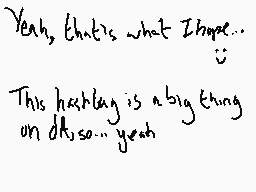 Yeah, that's what I hope...
This hashtag is a big thing
on dA, so... yeah